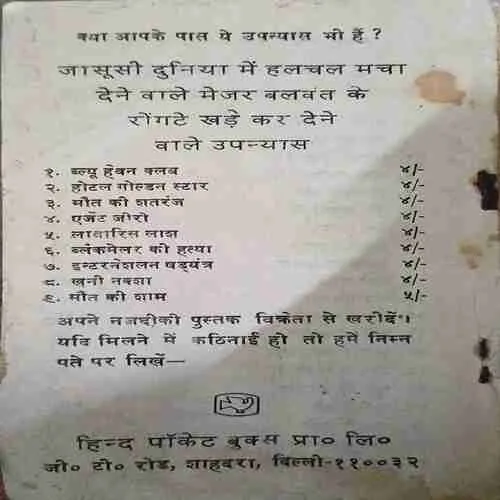 क्या आपके पास ये उपन्यास भी हैं ?
जासूसी दुनिया में हलचल मचा
देने वाले मेजर बलवंत के
रोंगटे खड़े कर देने
वाले उपन्यास
१. ब्ल्यू हेवन क्लब ४/-
२. होटल गोल्डन स्टार ४/-
३. मौत की शतरंज ४/-
४. एजेंट जीरो ४/-
५. लावारिस लाश ४/-
६. ब्लैकमेलर की हत्या ४/-
७. इन्टरनेशलन षड्यंत्र ४/-
८. खूनी नक्शा ४/-
९. मौत की शाम ५/-
अपने नजदीकी पुस्तक विक्रेता से खरीदें।
यदि मिलने में कठिनाई हो तो हमें निम्न
पते पर लिखें—
हिन्द पॉकेट बुक्स प्रा० लि०
जी० टी० रोड, शाहदरा, दिल्ली-११००३२